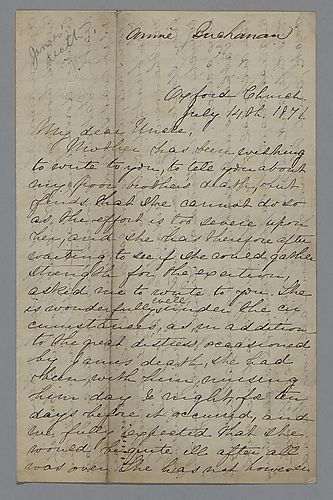 James
death
Annie Buchanan
Oxford Church
July 14th, 187
My dear Uncle,
Mother has been wishing
to write to you, to tell you about
my poor brothers death, but
finds that she cannot do so
as the effort is too severe upon
her, and she has therefore after
waiting to see if she could gather
strength for the exertion,
asked me to write to you. She
is wonderfully well under the cir
cumstances, as, in addition
to the great distress occasioned
by James' death, she had
been with him, nursing
him day & night, for ten
days before it occurred, and
we fully expected that she
would be quite ill after all
was over. She has not however